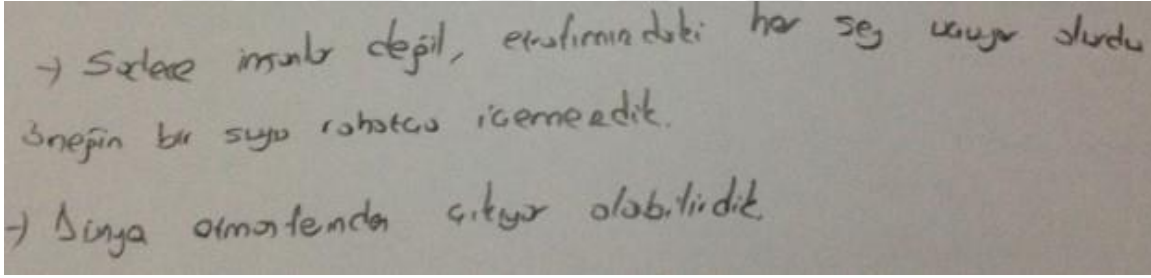 → Sadece insanlar değil, etrafımızdaki her şey uçuyor olurdu
örneğin bir suyu rahatça içemezdik.
→ Dünya atmosferinden çıkıyor olabilirdik